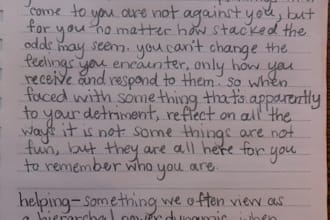 come to you are not against you, but
for you no matter how stacked the
odds may seem. you can't change the
feelings you encounter, only how you
receive and respond to them. so when
faced with something that's apparently
to your detriment, reflect on all the
ways it is not some things are not
fun, but they are all here for you
to remember who you are.
helping - something we often view as
a hierarchal power dynamic. when